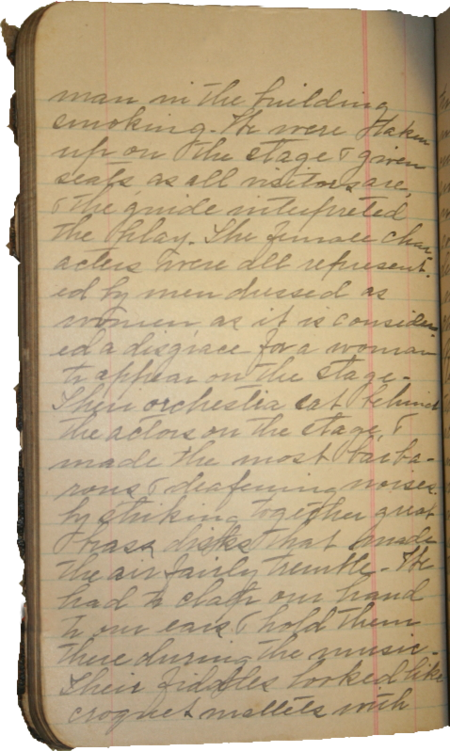 man in the building
smoking. We were taken
up on the stage & given
seats as all visitors are,
& the guide interpreted
the play. The female char
acters were all represent-
ed by men dressed as
women, as it is consider
ed a disgrace for a woman
to appear on the stage.
Their orchestra sat behind
the actors on the stage, &
made the most barba-
rous & deafening noises
by striking together great
brass disks that made
the air fairly tremble. We
had to clasp our hand
to our ears & hold them
there during the music.
Their fiddles looked like
croquet mallets with